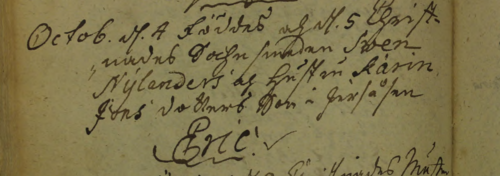 Octob. d. 4 föddes och d. 5 Christ-
nades Sochn smeden Swen
Nylanders och hustru Karin
Jöns dotters Son i
Eric.